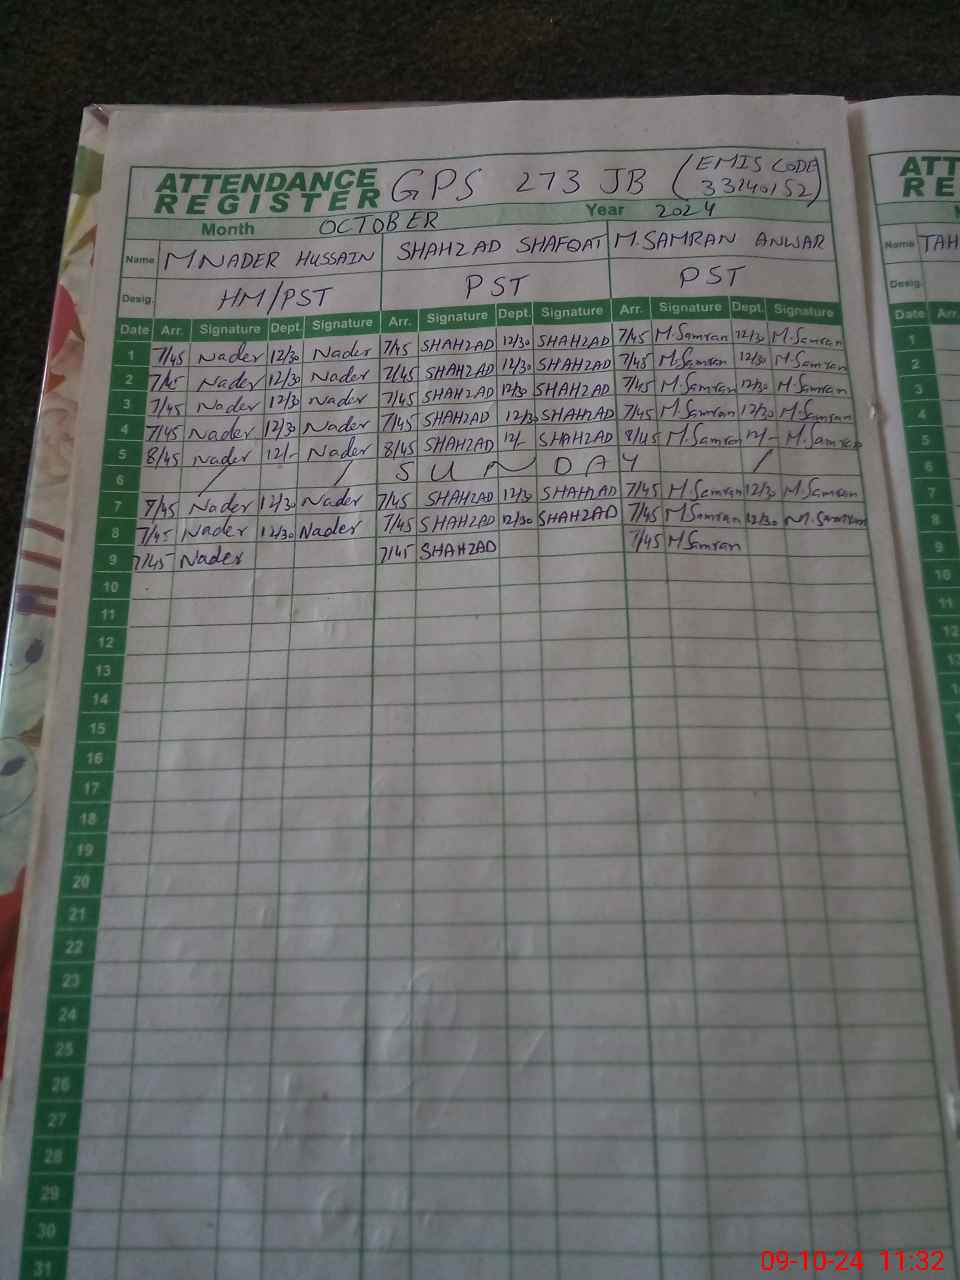 ATTENDANCE REGISTER GPS 273 JB (EMIS CODE 33140152)
Month OCTOBER Year 2024
Name M NADER HUSSAIN SHAHZAD SHAFQAT M.SAMRAN ANWAR
Desig. HM/PST PST PST
Date Arr. Signature Dept. Signature Arr. Signature Dept. Signature Arr. Signature Dept. Signature
1 7/45 Nader 12/30 Nader 7/45 SHAHZAD 12/30 SHAHZAD 7/45 M.Samran 12/30 M.Samran
2 7/45 Nader 12/30 Nader 7/45 SHAHZAD 12/30 SHAHZAD 7/45 M.Samran 12/30 M.Samran
3 7/45 Nader 12/30 Nader 7/45 SHAHZAD 12/30 SHAHZAD 7/45 M.Samran 12/30 M.Samran
4 7/45 Nader 12/30 Nader 7/45 SHAHZAD 12/30 SHAHZAD 7/45 M.Samran 12/30 M.Samran
5 8/45 Nader 12/- Nader 8/45 SHAHZAD 12/- SHAHZAD 8/45 M.Samran 12/- M.Samran
6 / / S U N D A Y /
7 7/45 Nader 12/30 Nader 7/45 SHAHZAD 12/30 SHAHZAD 7/45 M.Samran 12/30 M.Samran
8 7/45 Nader 12/30 Nader 7/45 SHAHZAD 12/30 SHAHZAD 7/45 M.Samran 12/30 M.Samran
9 7/45 Nader 7/45 SHAHZAD 7/45 M.Samran
10
11
12
13
14
15
16
17
18
19
20
21
22
23
24
25
26
27
28
29
30
31
ATT
RE
Name TAH
Desig.
Date Arr.
1
2
3
4
5
6
7
8
9
10
11
12
09-10-24 11:32